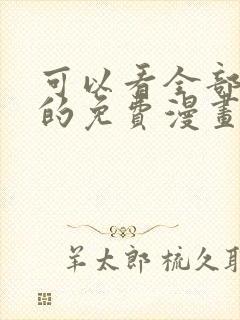 可以看全部
的免費漫畫
羊太郎 梳久耶